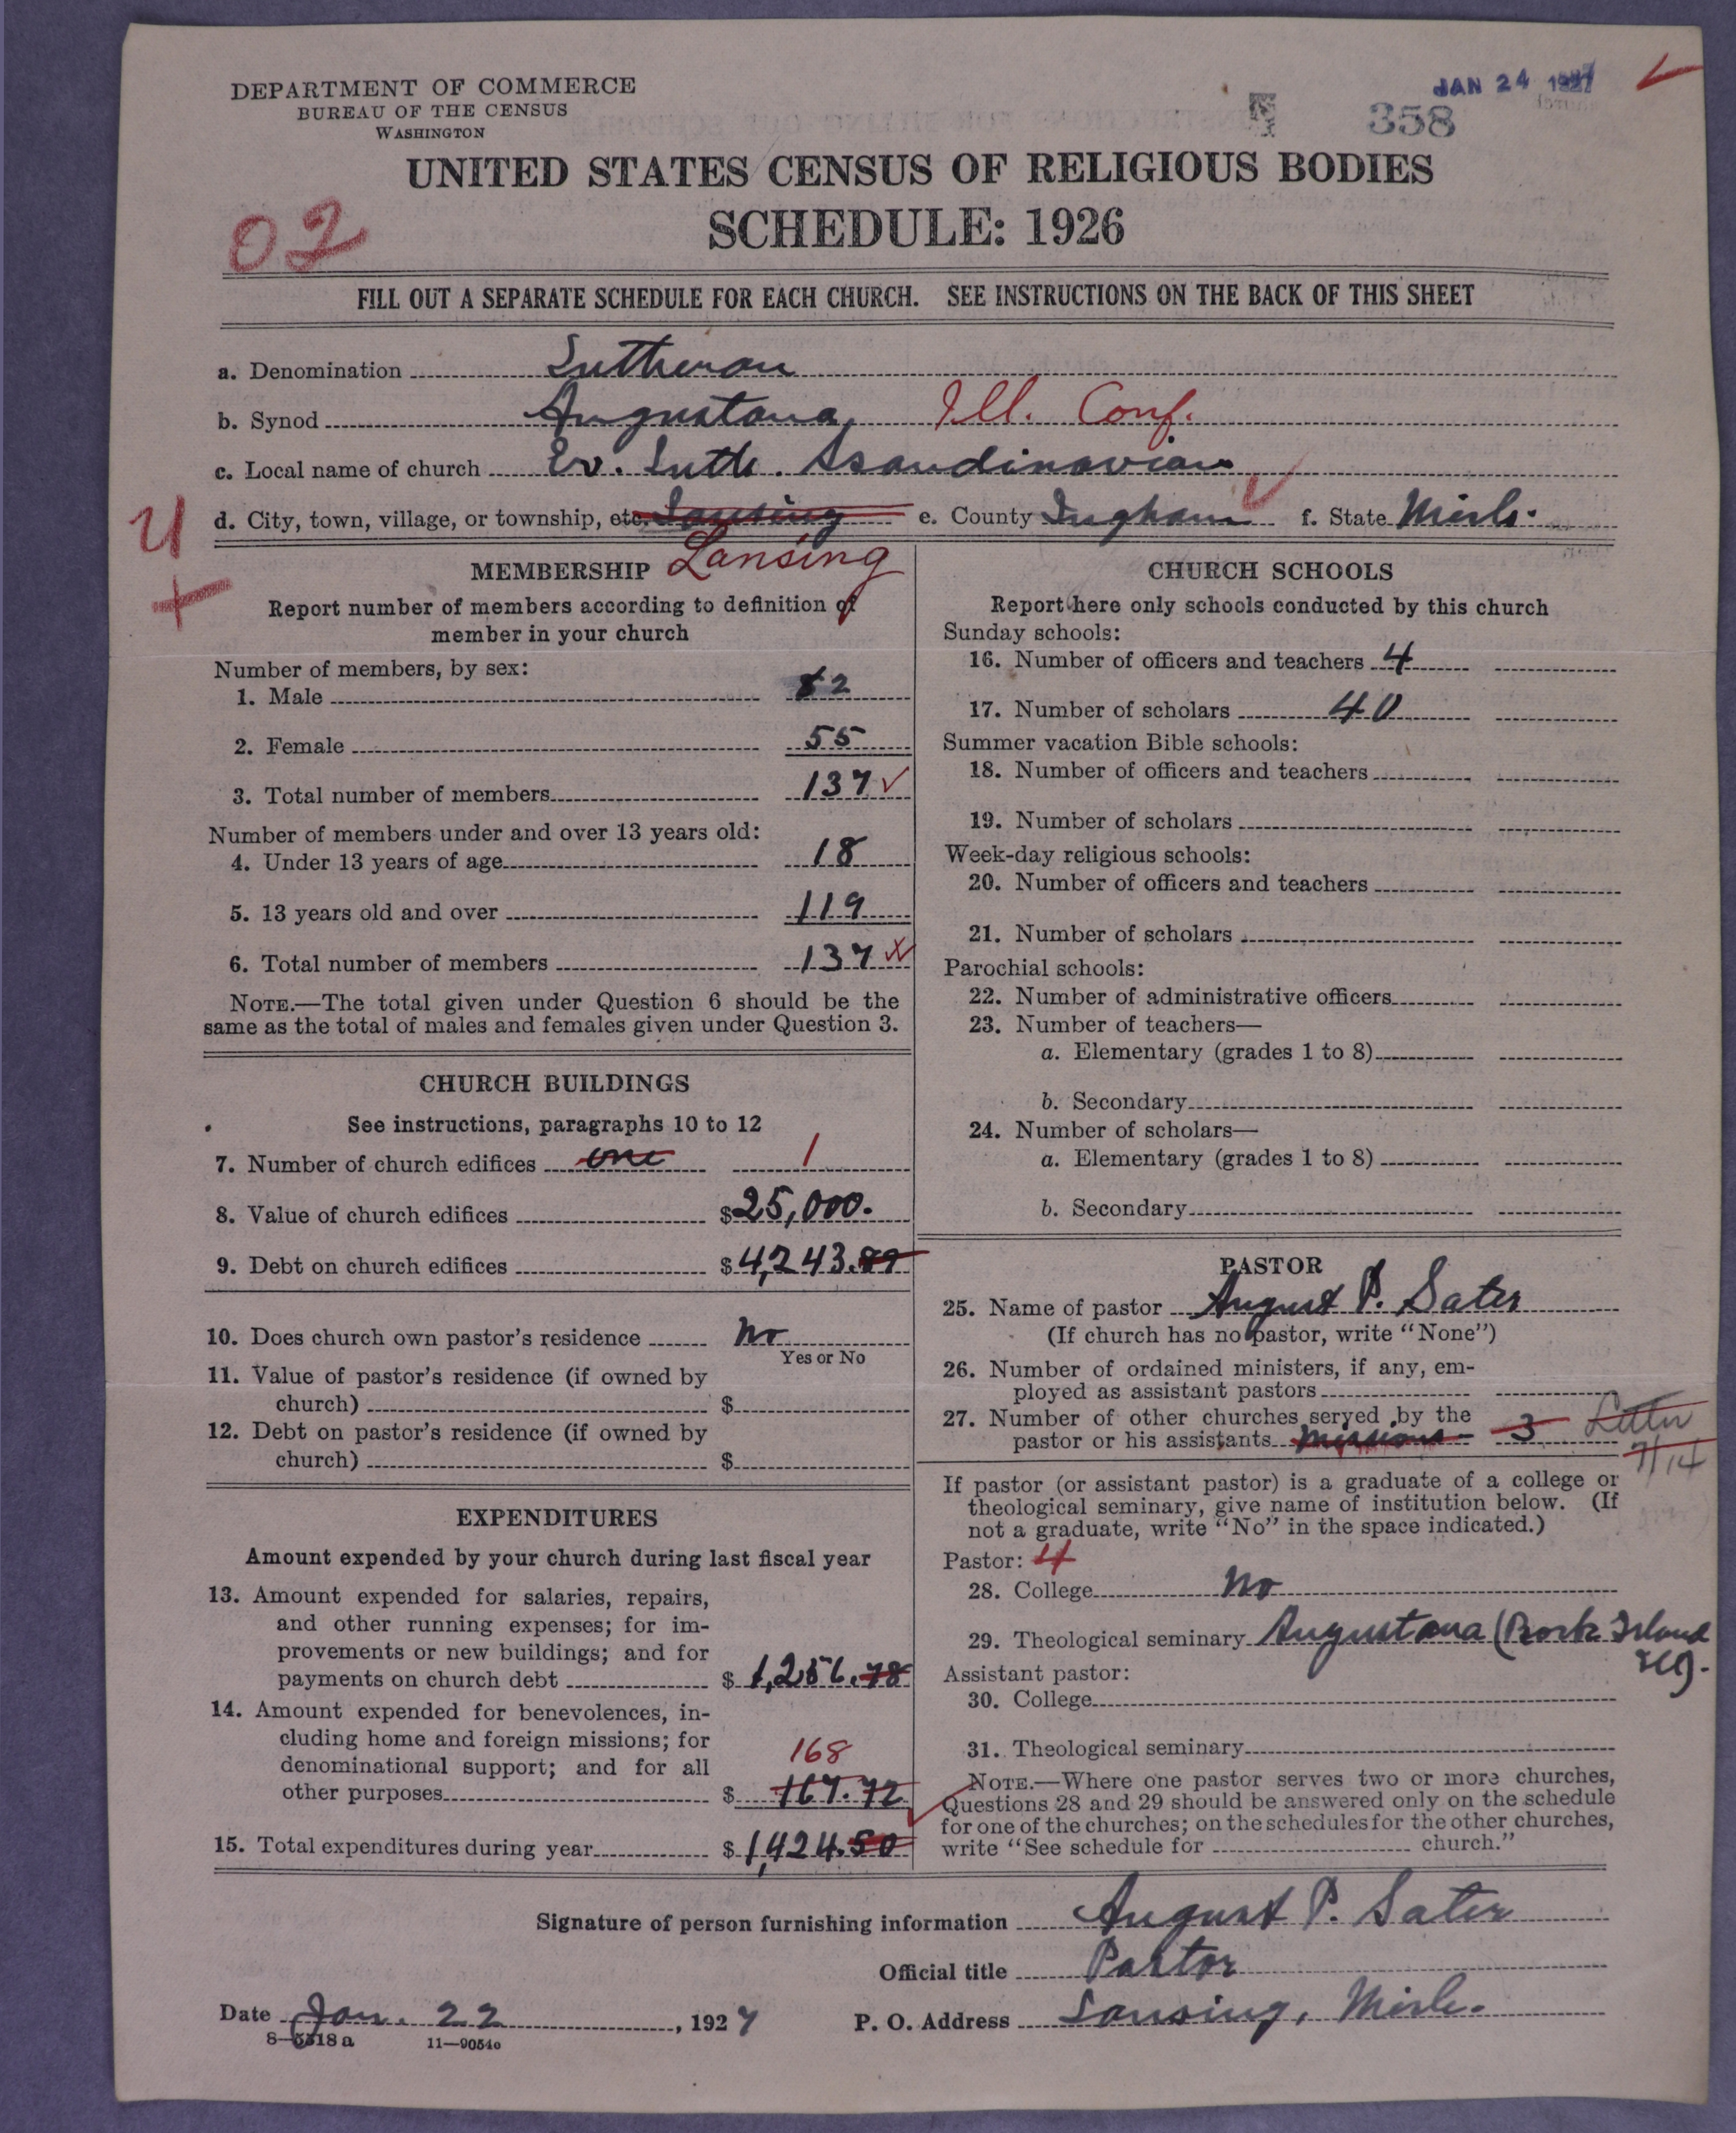 DEPARTMENT OF COMMERCE
BUREAU OF THE CENSUS
WASHINGTON
JAN 24 1927
358
UNITED STATES CENSUS OF RELIGIOUS BODIES
SCHEDULE: 1926
02
FILL OUT A SEPARATE SCHEDULE FOR EACH CHURCH. SEE INSTRUCTIONS ON THE BACK OF THIS SHEET
a. Denomination Lutheran
b. Synod Augustana, Ill. Conf.
c. Local name of church Ev. Luth. Scandinavian
d. City, town, village, or township, etc. Lansing e. County Ingham f. State Mich.
Lansing
MEMBERSHIP
Report number of members according to definition of
member in your church
Number of members, by sex:
1. Male 82
2. Female 55
3. Total number of members 137
Number of members under and over 13 years old:
4. Under 13 years of age 18
5. 13 years old and over 119
6. Total number of members 137
NOTE.—The total given under Question 6 should be the
same as the total of males and females given under Question 3.
CHURCH BUILDINGS
See instructions, paragraphs 10 to 12
7. Number of church edifices one 1
8. Value of church edifices $25,000.
9. Debt on church edifices $4,243.89
10. Does church own pastor's residence No
Yes or No
11. Value of pastor's residence (if owned by
church) $
12. Debt on pastor's residence (if owned by
church) $
EXPENDITURES
Amount expended by your church during last fiscal year
13. Amount expended for salaries, repairs,
and other running expenses; for im-
provements or new buildings; and for
payments on church debt $1,256.78
14. Amount expended for benevolences, in-
cluding home and foreign missions; for
denominational support; and for all
168
other purposes $167.72
15. Total expenditures during year $1,424.50
CHURCH SCHOOLS
Report here only schools conducted by this church
Sunday schools:
16. Number of officers and teachers 4
17. Number of scholars 40
Summer vacation Bible schools:
18. Number of officers and teachers
19. Number of scholars
Week-day religious schools:
20. Number of officers and teachers
21. Number of scholars
Parochial schools:
22. Number of administrative officers
23. Number of teachers—
a. Elementary (grades 1 to 8)
b. Secondary
24. Number of scholars—
a. Elementary (grades 1 to 8)
b. Secondary
PASTOR
25. Name of pastor August P. Sater
(If church has no pastor, write "None")
26. Number of ordained ministers, if any, em-
ployed as assistant pastors
27. Number of other churches served by the
pastor or his assistants missions 3 Letter
7/14
If pastor (or assistant pastor) is a graduate of a college or
theological seminary, give name of institution below. (If
not a graduate, write "No" in the space indicated.)
Pastor: 4
28. College No
29. Theological seminary Augustana (Rock Island
Assistant pastor:
30. College
31. Theological seminary
NOTE.—Where one pastor serves two or more churches,
Questions 28 and 29 should be answered only on the schedule
for one of the churches; on the schedules for the other churches,
write "See schedule for church."
Signature of person furnishing information August P. Sater
Official title Pastor
Date Jan. 22, 1927 P. O. Address Lansing, Mich.
8—5518a 11—9054o